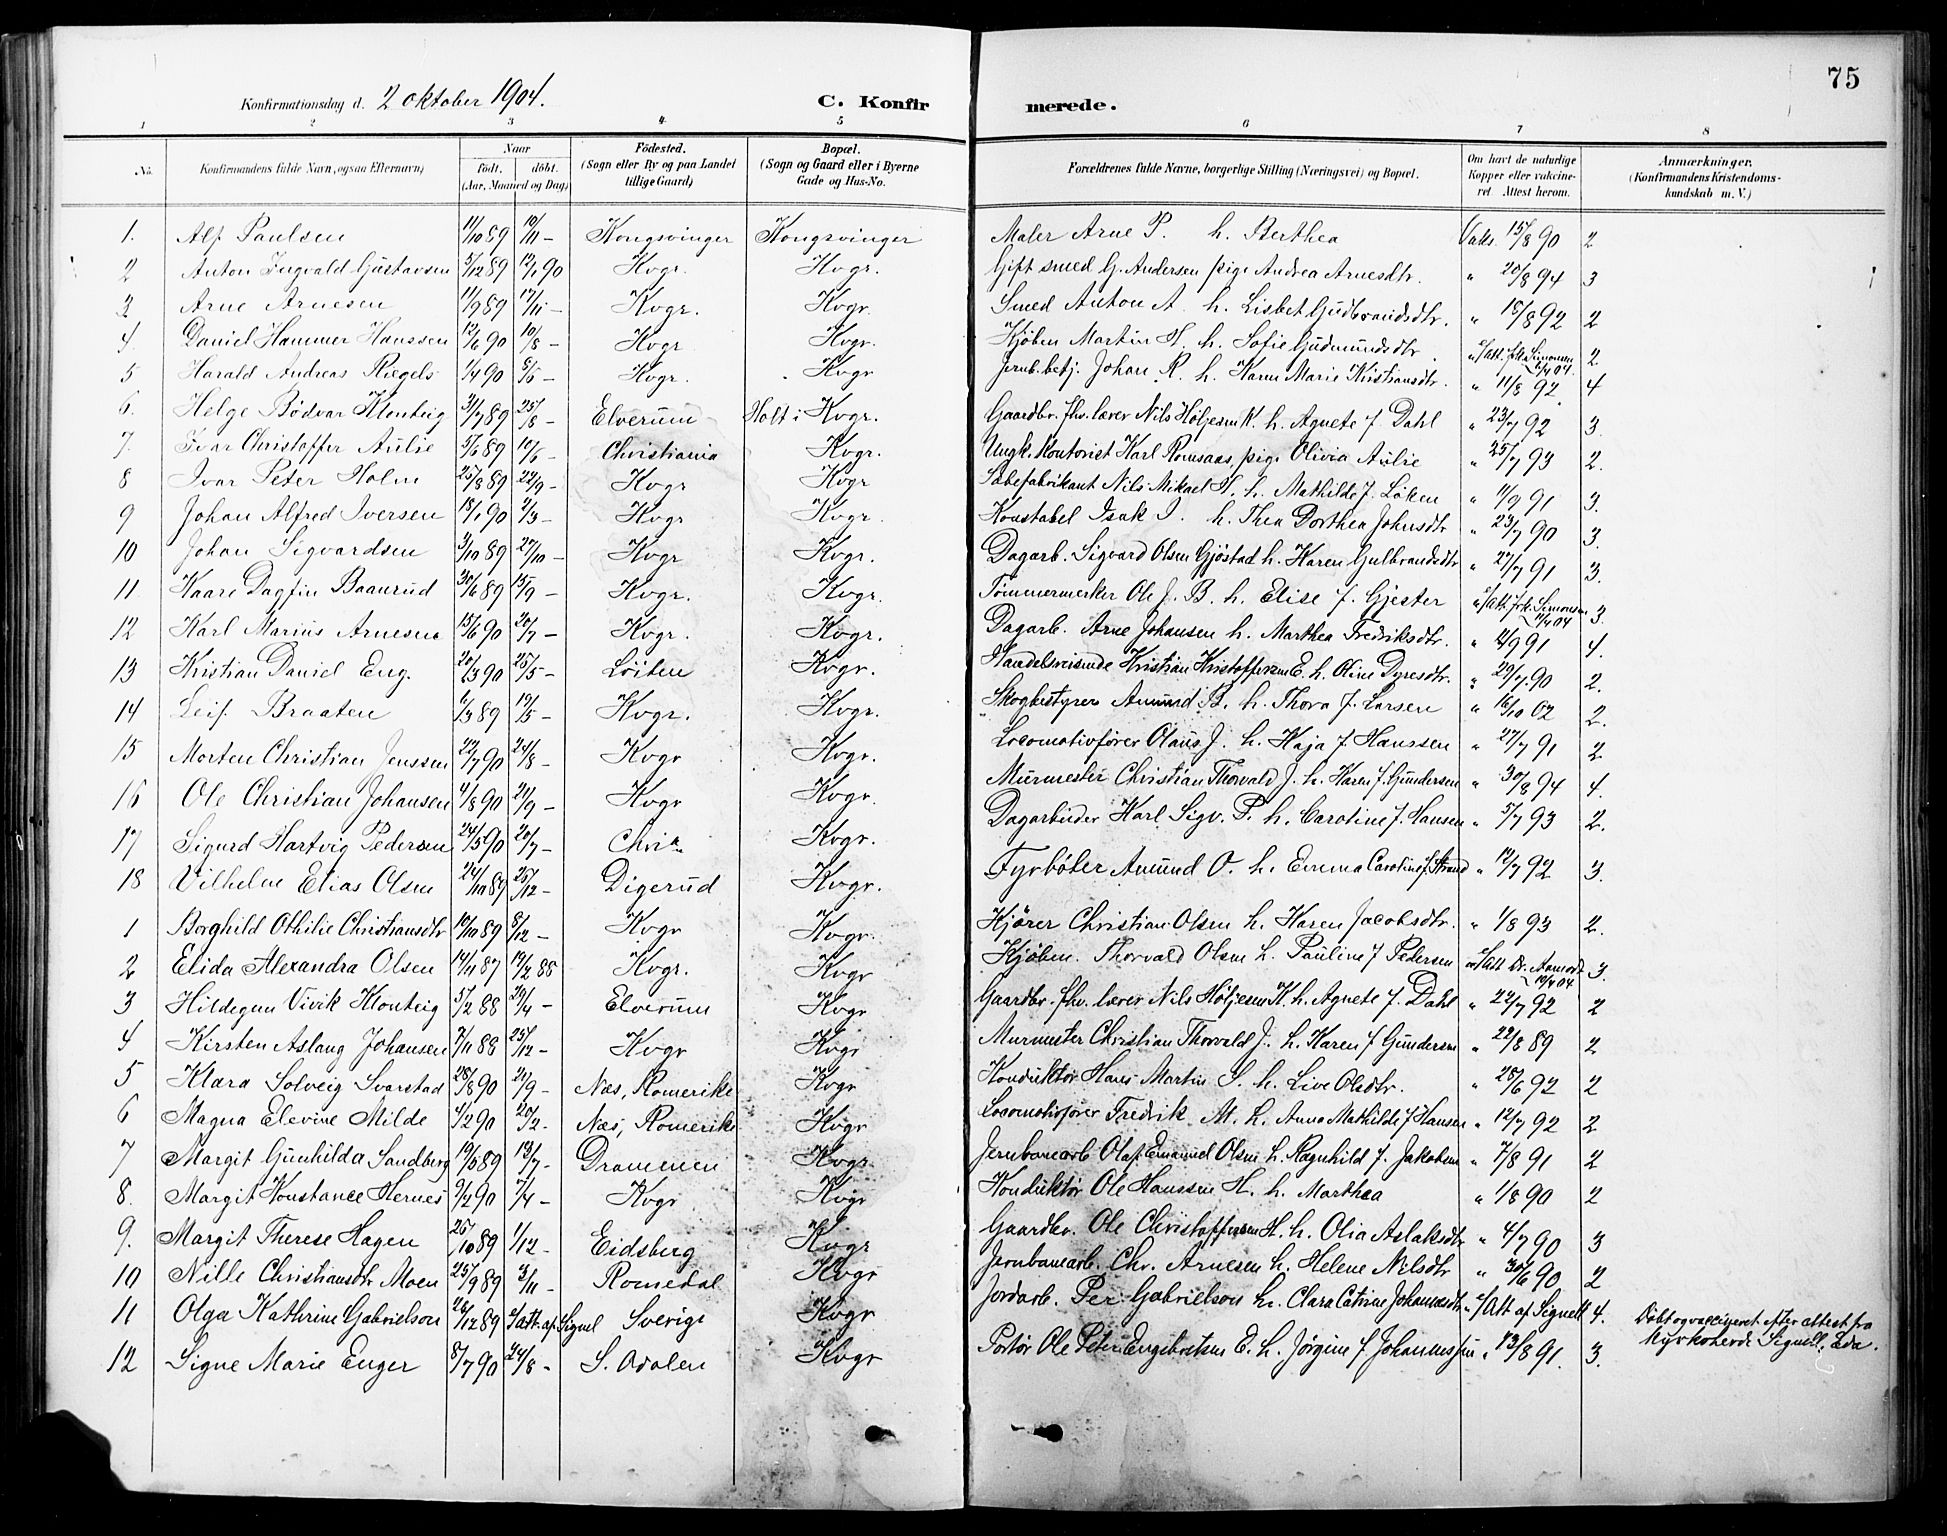 75
Konfirmationsdag d. 2 oktober 1904. C. Konfirmerede.
1 2 3 4 5 6 7 8
No. Konfirmandens fulde Navn, ogsaa Efternavn) Naar født. døbt. (Aar, Maaned og Dag) Fødested. (Sogn eller By og paa Landet tillige Gaard) Bopæl. (Sogn og Gaard eller i Byerne Gade og Hus-No. Forældrenes fulde Navne, borgerlige Stilling (Næringsvei) og Bopæl. Om havt de naturlige Kopper eller vakcineret. Attest herom. Anmærkninger. (Konfirmandens Kristendomskundskab m. V.)
1. Alf Paulsen 11/10 89 10/11 - Kongsvinger Kongsvinger Maler Arne P. h. Berthea Vakc. 15/8 90 2
2 Anton Ingvald Gustavsen 5/12 89 12/1 90 Kvgr. Kvgr. Gift smed G. Andersen pige Andrea Arnesdtr. " 20/8 94 3
3 Arne Arnesen 11/9 89 17/11 - Kvgr. Kvgr. Smed Anton A. h. Lisbet Gudbrandsdtr. " 18/8 92 2
4 Daniel Hammer Hanssen 12/6 90 10/8 - Kvgr Kvgr. Kjøbm Martin H. h. Sofie Gudmundsdtr. " s/Att. frk. Simonsen 2
5 Harald Andreas Riegels 1/4 90 8/6 - Kvgr. Kvgr Jernb.betj. Johan R. h. Karen Marie Kristiansdtr. " 11/8 92 4
6. Helge Bødvar Klonteig 31/7 89 25/8 - Elverum Holt i Kvgr. Gaardbr. fhv. lærer Nils Høljesen K. h. Agnete f. Dahl " 23/7 92 3.
7. Ivar Christoffer Aulie 5/6 89 10/6 - Christiania Kvgr. Ungk. Kontorist Karl Romsaas, pige Olivia Aulie " 25/7 93 2.
8 Ivar Peter Holm 25/8 89 22/9 - Kvgr Kvgr Sæbefabrikant Nils Mikael H. h. Mathilde f. Løken " 11/9 91 3.
9 Johan Alfred Iversen 18/1 90 2/3 - Kvgr Kvgr. Konstabel Isak I. h. Thea Dorthea Johnsdtr " 23/7 90 3.
10 Johan Sigvardsen 3/10 89 27/10 - Kvgr. Kvgr. Dagarb. Sigvard Olsen Gjøstad h. Karen Gulbrandsdtr " 27/7 91 3.
11. Kaare Dagfin Baanrud 30/6 89 15/9 - Kvgr. Kvgr. Tømmermerker Ole J. B. h. Elise f. Gjester " s/Att. frk. Simonsen 3.
12 Karl Marius Arnesen 15/6 90 20/7 - Kvgr. Kvgr. Dagarb. Arne Johansen h. Marthea Fredriksdtr. " 2/9 91 4.
13 Kristian Daniel Eng. 20/3 90 25/5 - Løiten Kvgr. Handelsreisende Kristian Kristoffersen E. h. Oline Dyresdtr. " 29/7 90 2.
14 Leif Braaten 6/3 89 19/5 - Kvgr. Kvgr. Skogbestyrer Amund B. h. Thora f. Larsen " 16/10 02 2.
15 Morten Christian Jenssen 22/7 90 24/8 - Kvgr Kvgr. Locomotivfører Olaus J. h. Kaja f. Hanssen " 27/7 91 2
16 Ole Christian Johansen 4/8 90 21/9 - Kvgr Kvgr. Murmester Christian Thorvald J. h. Karen f. Gundersen " 30/8 94 4.
17 Sigurd Hartvig Pedersen 24/5 90 20/7 - Chria. Kvgr. Dagarbeider Karl Sigv. P. h. Caroline f. Hansen " 5/7 93 2.
18 Vilhelm Elias Olsen 24/10 89 26/12 - Digerud Kvgr. Fyrbøter Amund O. h. Emma Caroline f. Strand " 12/7 92 3.
1 Borghild Othilie Christiansdtr 10/10 89 8/12 - Kvgr Kvgr. Kjører Christian Olsen h. Karen Jacobsdtr. " 1/8 93 2.
2 Elida Alexandra Olsen 14/11 87 19/2 88 Kvgr. Kvgr Kjøbm. Thorvald Olsen h. Pauline f Pedersen " s/Att Dr. 3.
3 Hildegun Vivik Klonteig 5/2 88 29/4 - Elverum Kvgr Gaardbr. fhv. lærer Nils Høljesen K. h. Agnete f. Dahl " 22/7 92 2
4 Kirsten Aslaug Johansen 7/11 88 25/12 - Kvgr Kvgr Murmester Christian Thorvald J. h. Karen f Gundersen " 22/8 89 2
5 Klara Solveig Svarstad 28/8 90 21/9 - Næs, Romerike Kvgr Konduktør Hans Martin S. h. Live Olsdtr. " 28/6 92 2
6 Magna Elevine Milde 4/2 90 20/2 - Næs, Romerike Kvgr Locomotivfører Fredrik M. h. Anna Mathilde f. Hansen " 12/7 92 2
7 Margit Gunhilda Sandberg 19/5 89 13/7 - Drammen Kvgr Jernbanearb Olaf Emanuel Olsen h. Ragnhild f. Jakobsen " 7/8 91 2
8. Margit Konstance Hernes 9/2 90 7/4 - Kvgr Kvgr Konduktør Ole Hanssen H. h. Marthea " 1/8 90 2
9. Margit Therese Hagen 26/10 89 1/12 - Eidsberg Kvgr Gaardbr. Ole Christoffersen H. h. Olia Aslaksdtr " 4/7 90 3
10 Nille Christiansdtr Moen 25/9 89 3/11 - Romedal Kvgr Jernbanearb. Chr. Arnesen h. Helene Nilsdtr " 30/6 90 2
11 Olga Kathrine Gabrielson 28/12 89 s/att. af Signel Sverige Kvgr Jordarb. Per Gabrielson h. Clara Catrine Johannesdtr. " s/Att af Signell 4. Døbt og vaccineret efter attest fra Kyrkoherde Signell, Eda.
12 Signe Marie Enger 8/7 90 24/8 - S. Odalen Kvgr Portør Ole Peter Engebretsen E. h. Jørgine f Johannessen " 13/8 91. 3.